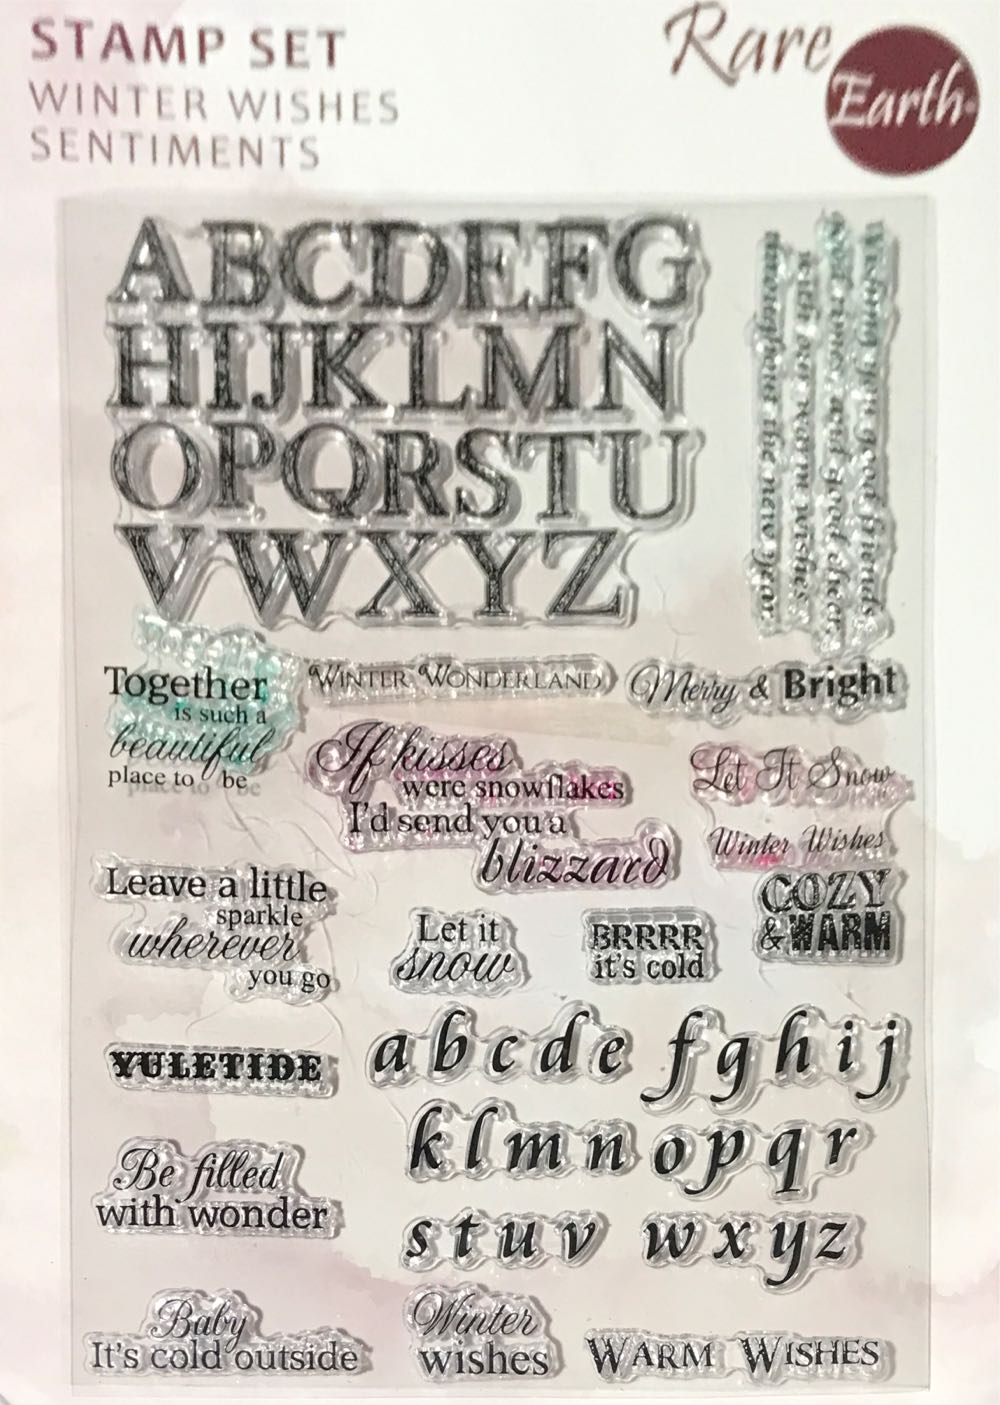 STAMP SET
WINTER WISHES
SENTIMENTS
Rare
Earth
ABCDEFG
HIJKLMN
OPQRSTU
VWXYZ
Wishing you good friends,
good times and good cheer
with our warm wishes
throughout the new year.
Together
is such a
beautiful
place to be
WINTER WONDERLAND
Merry & Bright
If kisses
were snowflakes
I'd send you a
blizzard
Let It Snow
Winter Wishes
Leave a little
sparkle
wherever
you go
Let it
snow
BRRRR
it's cold
COZY
& WARM
YULETIDE
a b c d e f g h i j
k l m n o p q r
s t u v w x y z
Be filled
with wonder
Baby
It's cold outside
Winter
wishes
WARM WISHES